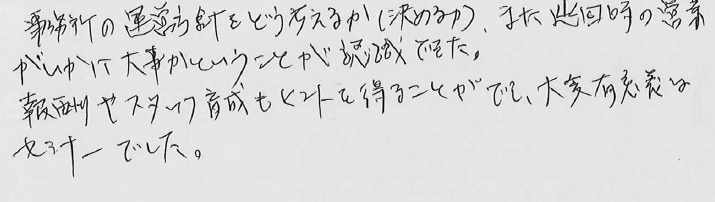 事務所の運営方針をどう考えるか(決めるか)、また巡回時の営業
がいかに大事かということが認識できた。
報酬やスタッフ育成もヒントを得ることができ、大変有意義な
セミナーでした。